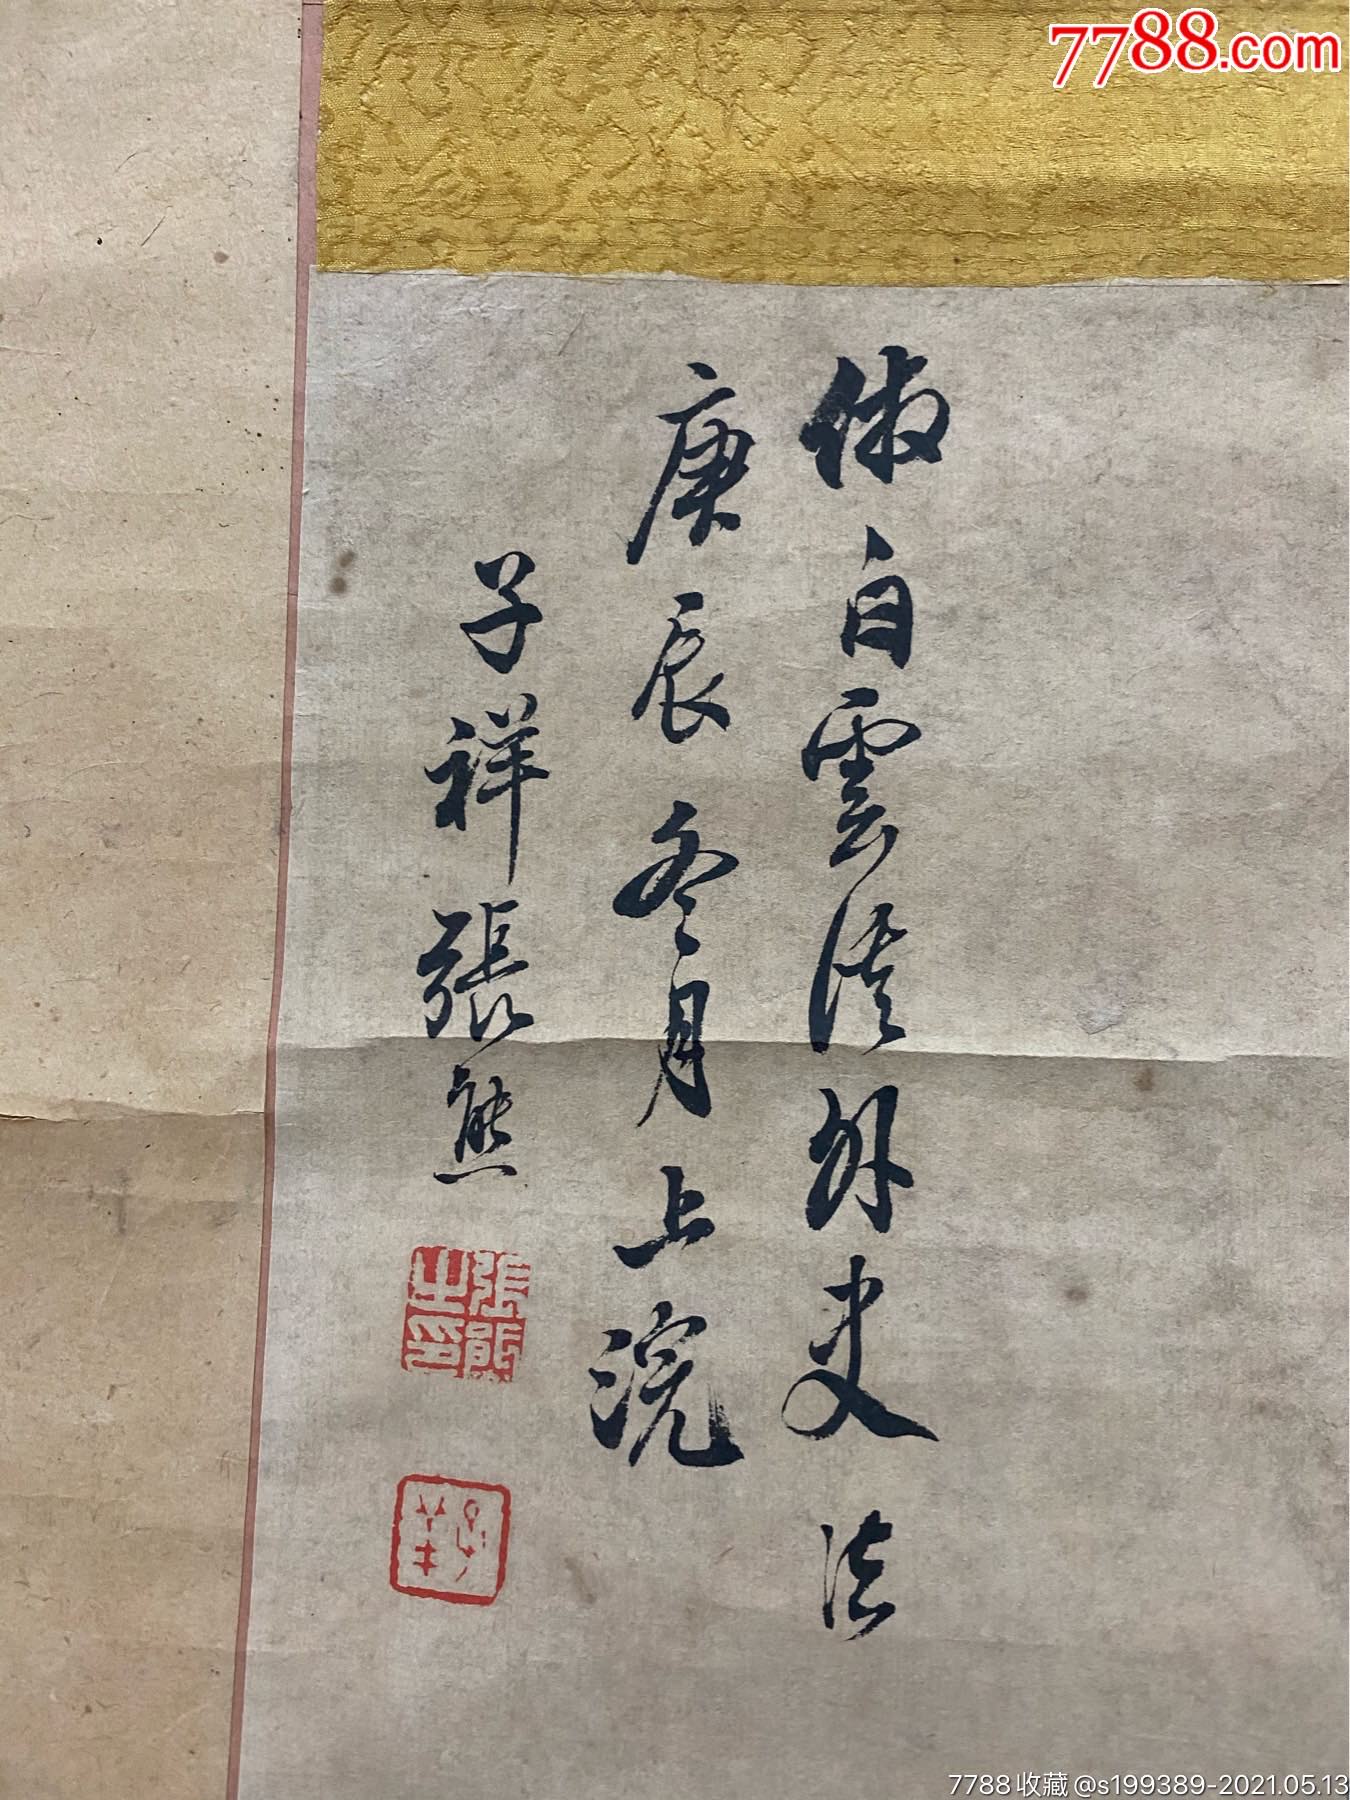 7788.com
倣白雲溪外史法
庚辰冬月上浣
子祥張熊
張熊之印
子祥
7788收藏@s199389-2021.05.13